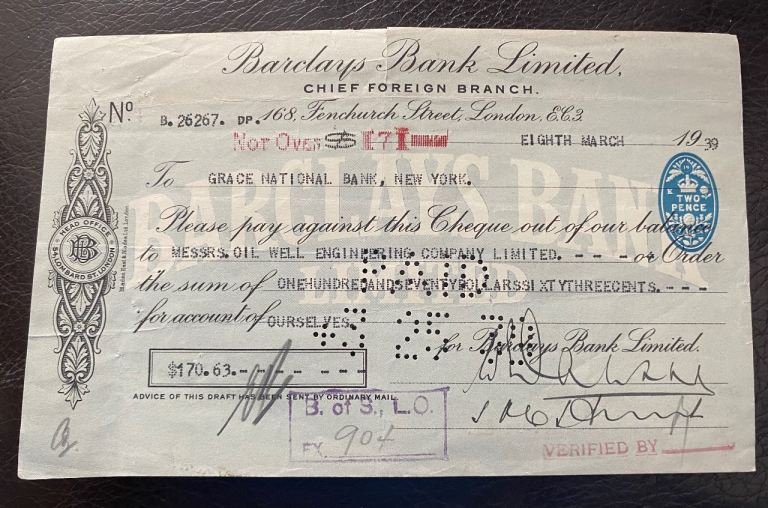 Barclays Bank Limited,
CHIEF FOREIGN BRANCH.
Nº B.26267. DP. 168, Fenchurch Street, London, E.C.3.
NOT OVER $171
EIGHTH MARCH 1939
To GRACE NATIONAL BANK, NEW YORK.
TWO PENCE
BARCLAYS BANK
LIMITED
Please pay against this Cheque out of our balance
to MESSRS. OIL WELL ENGINEERING COMPANY LIMITED. - - - or Order
the sum of ONEHUNDREDANDSEVENTYDOLLARSSIXTYTHREECENTS. - - -
for account of OURSELVES.
PAID
HEAD OFFICE
BB
54, LOMBARD ST. LONDON
for Barclays Bank Limited.
$170.63.-
ADVICE OF THIS DRAFT HAS BEEN SENT BY ORDINARY MAIL.
B. of S., L.O.
FX 904
VERIFIED BY